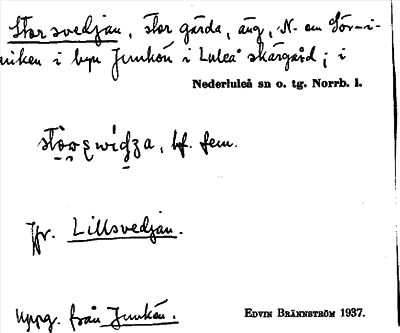 Storsvedjan, stor gärda, äng, N. om Sör-i-
niken i byn Junkön i Luleå skärgård; i
Nederluleå sn o. tg. Norrb. l.
bf. fem.
Jfr. Lillsvedjan.
Uppg. från Junkön.
Edvin Brännström 1937.